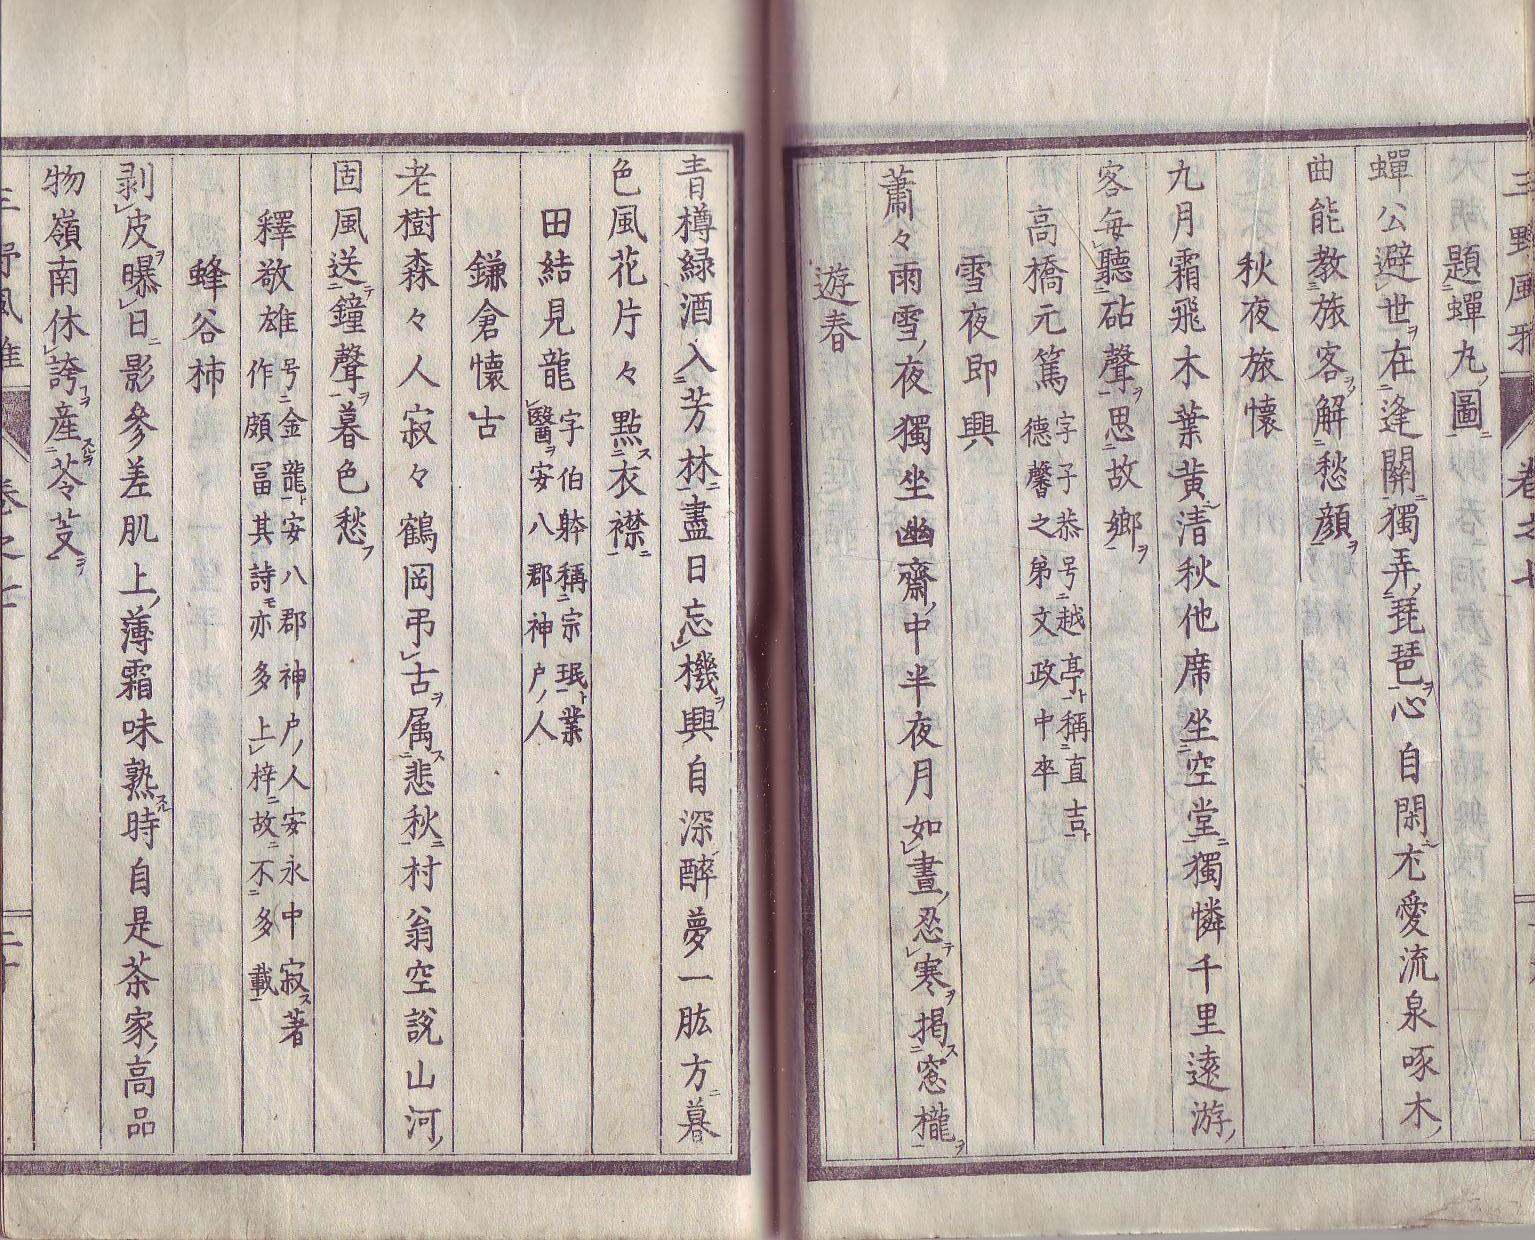 題蟬丸ノ圖
蟬公避世在逢關獨弄琵琶心自閑尤愛流泉啄木ノ
曲能教旅客解愁顔
秋夜旅懷
九月霜飛木葉黄清秋他席坐空堂獨憐千里遠游ノ
客毎聽砧聲思故鄉
高橋元篤 字子恭号越亭稱直吉
德馨之弟文政中卒
雪夜即興
蕭々雨雪ノ夜獨坐幽齋ノ中半夜月如晝ノ忍寒掲窓櫳
遊春
青樽緑酒入芳林盡日忘機興自深醉夢一肱方暮
色風花片々點衣襟
田結見龍 字伯躰稱宗珉業
醫安八郡神戸ノ人
鎌倉懷古
老樹森々人寂々鶴岡弔古属悲秋村翁空說山河ノ
固風送鐘聲暮色愁
釋敬雄 号金龍安八郡神戸ノ人安永中寂著
作頗冨其詩モ亦多上梓故不多載
蜂谷柿
剥皮曝日影參差肌上ノ薄霜味熟時自是茶家ノ高品
物嶺南休誇産苓芝
三野風雅
卷之七